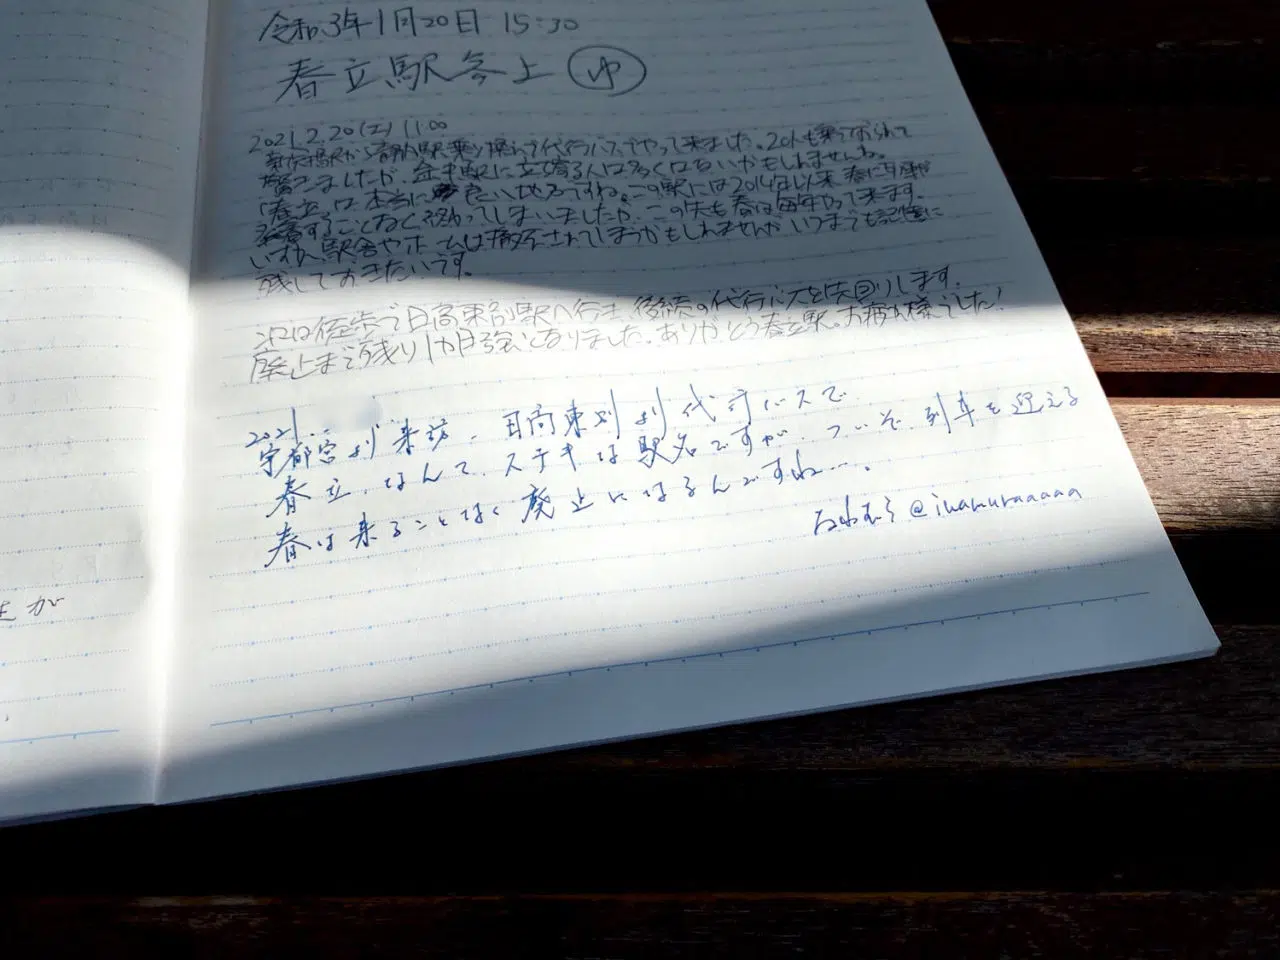 令和3年1月20日 15:30
春立駅参上 ゆ
2021.2.20(土) 11:00
静内駅乗り換えで代行バスでやって来ました。20人も乗っておられて
驚きましたが、駅に立ち寄る人は多くはないかもしれませんね。
「春立」は本当に良い地名ですね。この駅には2014年以来 春に列車が
発着することなく終わってしまいましたが、この先も春は毎年やって来ます。
いずれ駅舎やホームは撤去されてしまうかもしれませんが いつまでも記憶に
残しておきたいです。
次は徒歩で日高東別駅へ行き、後続の代行バスを先回りします。
廃止まで残り1か月強となりました。ありがとう春立駅。お疲れ様でした!
2021.
宇都宮より来訪。日高東別より代行バスで。
春立、なんて、ステキな駅名ですが、ついぞ、列車を迎える
春は来ることなく廃止になるんですね…。
@iwamuraaaaa
生が